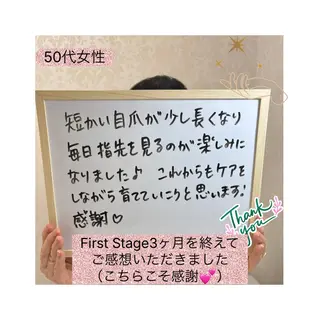 50代女性
短かい自爪が少し長くなり
毎日指先を見るのが楽しみに
なりました♪ これからもケアを
しながら育てていこうと思います!
感謝♡
Thank you
First Stage3ヶ月を終えて
ご感想いただきました
(こちらこそ感謝💕)